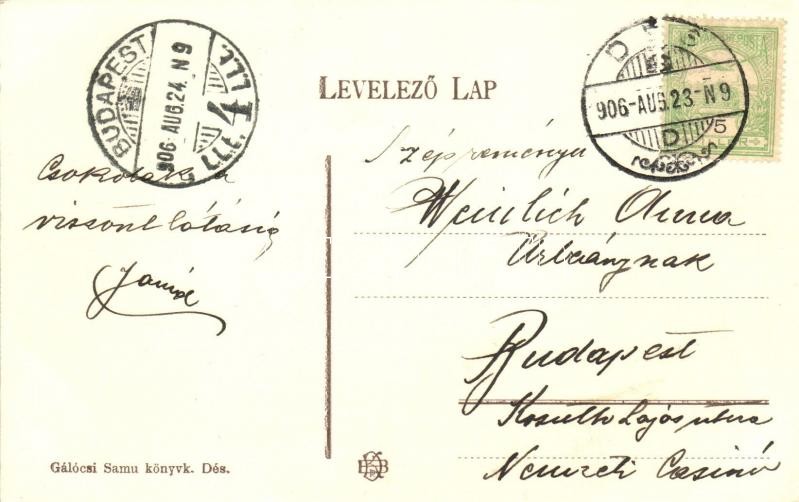 BUDAPEST
906-AUG.24. N 9
4
LEVELEZŐ LAP
POSTA
D S
906-AUG.23-N 9
D
5
Csókolak a
viszont látásig
Szépreményű
Anna
Urleánynak
Budapest
Kosuth Lajos utcza
Nemzeti Casinó
Gálócsi Samu könyvk. Dés.